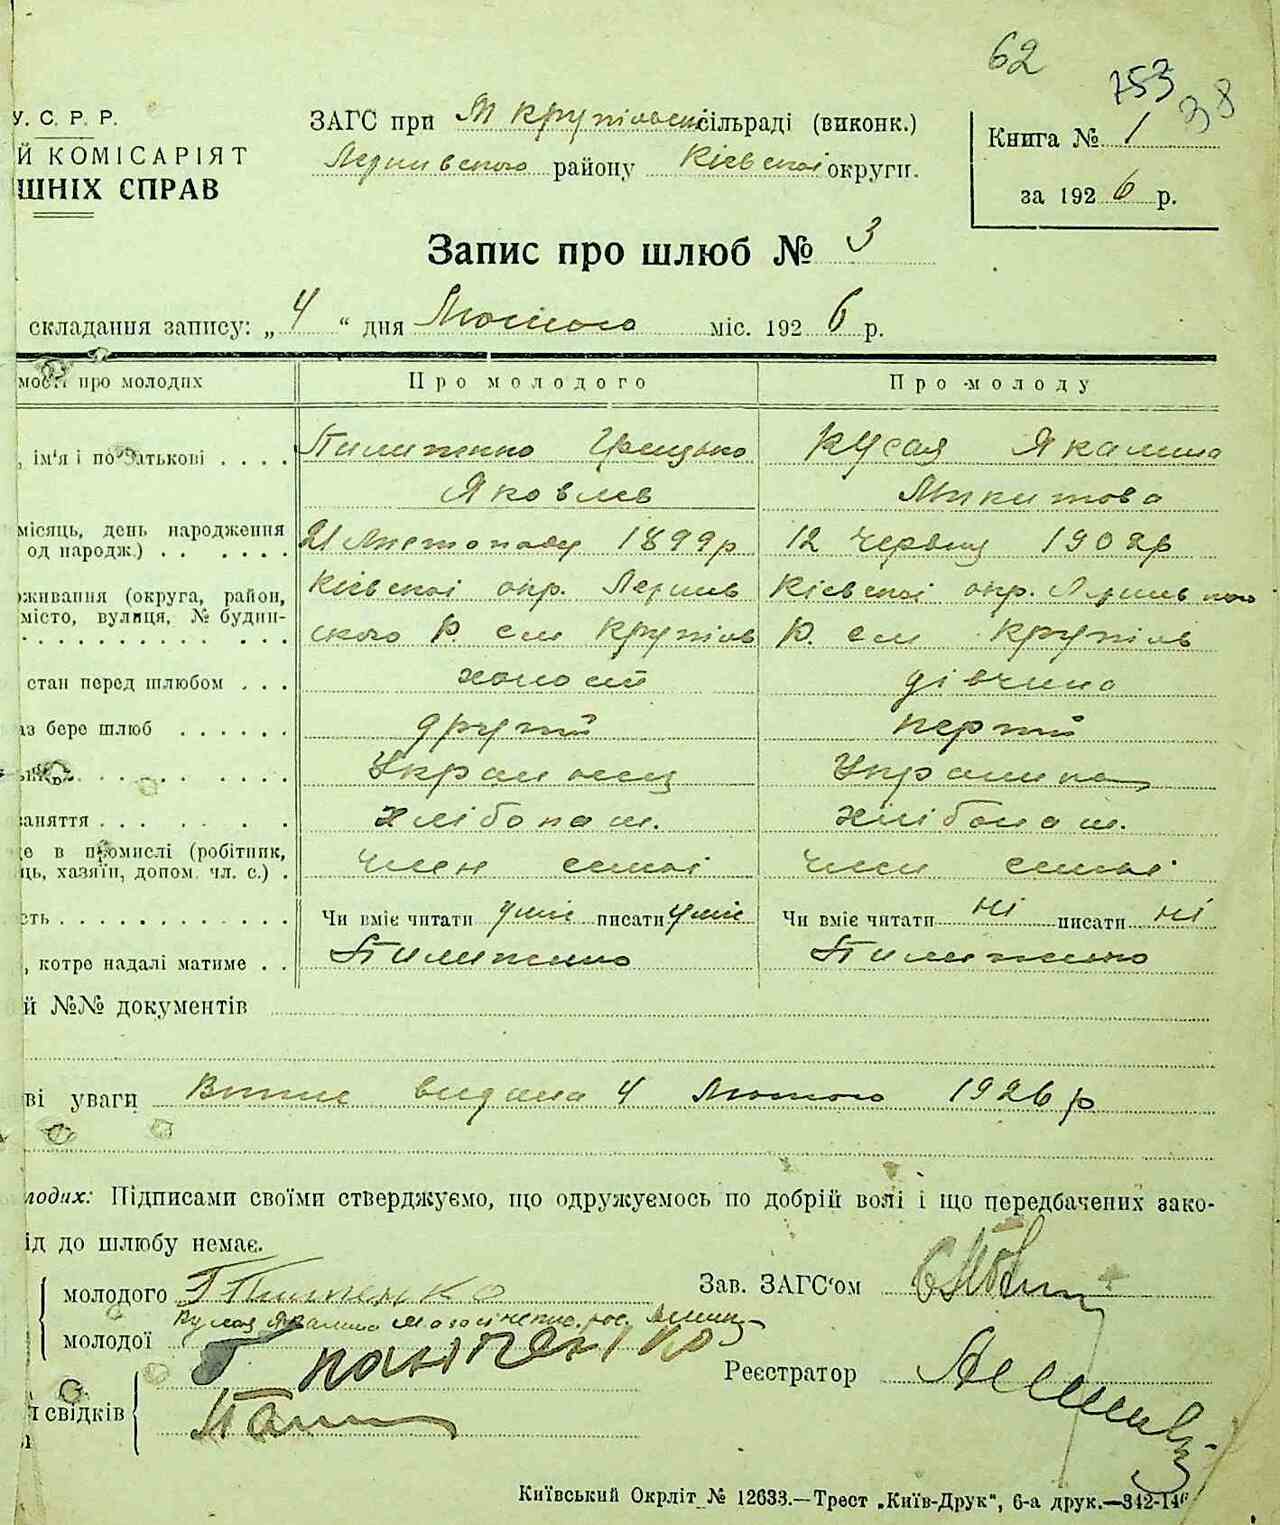 62
753
38
У. С. Р. Р.
Й КОМІСАРІЯТ
ШНІХ СПРАВ
ЗАГС при М Крупільск сільраді (виконк.)
району Кієвскої округи.
Книга № 1
за 1926 р.
Запис про шлюб № 3
складання запису: „4“ дня Лютого міс. 1926 р.
мості про молодих Про молодого Про молоду
, ім'я і по батькові . . . . Пилипенко Грицько Кусая Якилина
Яковлев Микитова
місяць, день народження
од народж.) . . . . . . 21 Листопаду 1899р 12 Червця 1902р
живання (округа, район, Кієвскої окр. Кієвскої окр.
місто, вулиця, № будин- ского Р. см Крупіль Р. см Крупіль
стан перед шлюбом . . . холостй дівчина
аз бере шлюб . . . . . . другий перший
Украинец Украинка
заняття . . . . . . . хлібопаш. хлібопаш.
це в промислі (робітник,
ць, хазяїн, допом. чл. с.) . член семьї член семьї
сть . . . . . . . . . . . Чи вміє читати уміє писати уміє Чи вміє читати ні писати ні
, котре надалі матиме . . Пилипенко Пилипенко
й №№ документів
ві уваги Випис видана 4 Лютого 1926 р
лодих: Підписами своїми стверджуємо, що одружуємось по добрій волі і що передбачених зако-
ід до шлюбу немає.
молодого Г Пилипенко
Зав. ЗАГС'ом
молодої Кусая Якилина
Реєстратор
свідків
Київський Окрліт № 12633.—Трест „Київ-Друк“, 6-а друк.—342-146